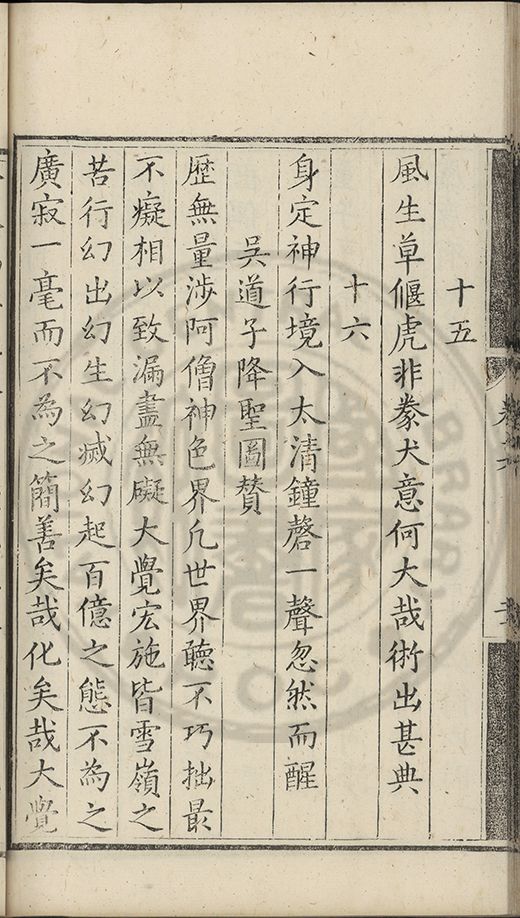 十五
風生草偃虎非豢犬意何大哉術出甚典
十六
身定神行境入太清鐘磬一聲忽然而醒
吳道子降聖圖贊
歷無量涉阿僧神色界凡世界聽不巧拙最
不癡相以致漏盡無礙大覺宏施皆雪嶺之
苦行幻出幻生幻滅幻起百億之態不為之
廣寂一毫而不為之簡善矣哉化矣哉大覺